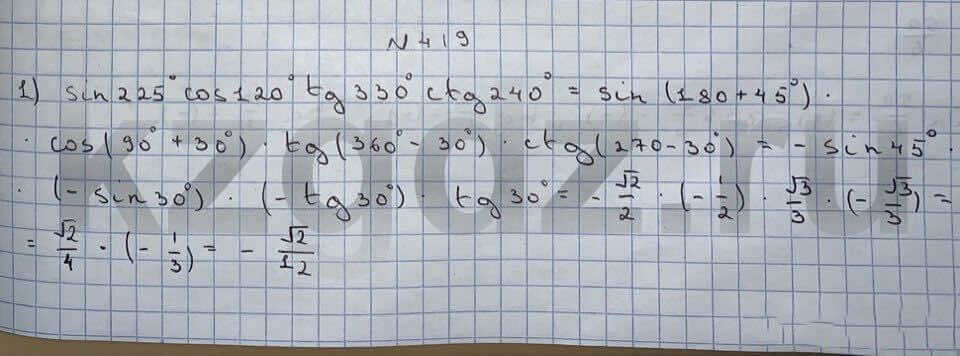 N 419
1) sin 225° cos 120° tg 330° ctg 240° = sin (180 + 45°) ·
· cos (90° + 30°) · tg (360° - 30°) · ctg (270 - 30°) = - sin 45° ·
· (- sin 30°) · (- tg 30°) · tg 30° = - √2/2 · (- 1/2) · √3/3 · (- √3/3) =
= √2/4 · (- 1/3) = - √2/12
gdz.ru